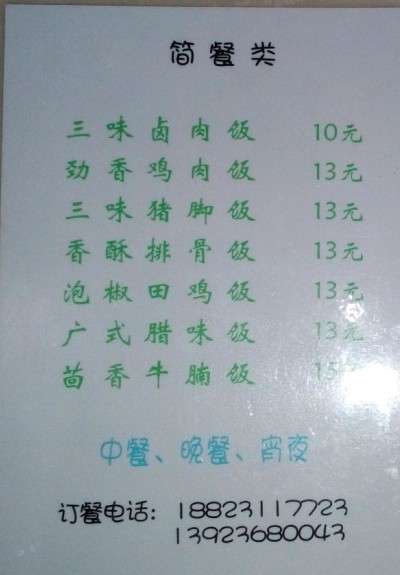 简餐类
三味卤肉饭 10元
劲香鸡肉饭 13元
三味猪脚饭 13元
香酥排骨饭 13元
泡椒田鸡饭 13元
广式腊味饭 13元
茴香牛腩饭 15元
中餐、晚餐、宵夜
订餐电话：18823117723
13923680043